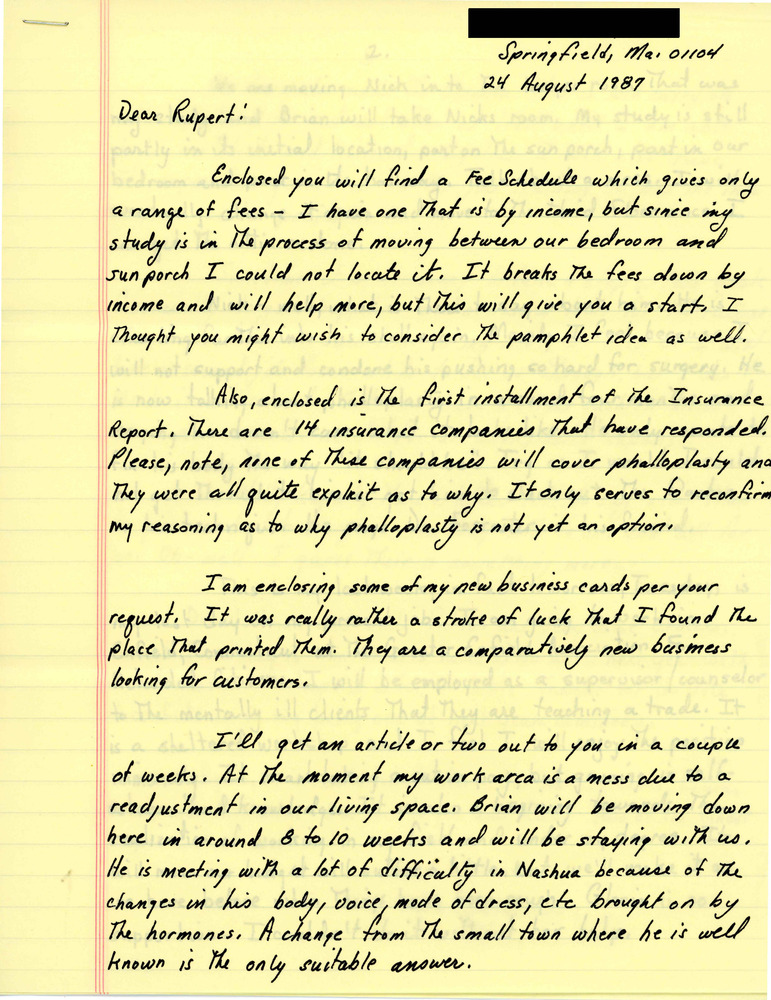 Springfield, Ma. 01104
24 August 1987
Dear Rupert:
Enclosed you will find a Fee Schedule which gives only
a range of fees - I have one that is by income, but since my
study is in the process of moving between our bedroom and
sunporch I could not locate it. It breaks the fees down by
income and will help more, but this will give you a start. I
thought you might wish to consider the pamphlet idea as well.
Also, enclosed is the first installment of the Insurance
Report. There are 14 insurance companies that have responded.
Please, note, none of these companies will cover phalloplasty and
they were all quite explicit as to why. It only serves to reconfirm
my reasoning as to why phalloplasty is not yet an option.
I am enclosing some of my new business cards per your
request. It was really rather a stroke of luck that I found the
place that printed them. They are a comparatively new business
looking for customers.
I'll get an article or two out to you in a couple
of weeks. At the moment my work area is a mess due to a
readjustment in our living space. Brian will be moving down
here in around 8 to 10 weeks and will be staying with us.
He is meeting with a lot of difficulty in Nashua because of the
changes in his body, voice, mode of dress, etc brought on by
the hormones. A change from the small town where he is well
known is the only suitable answer.